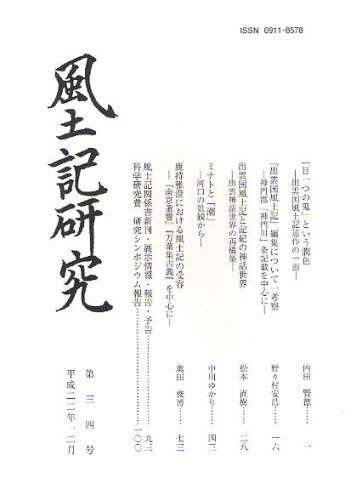 ISSN 0911-8578
風土記研究
「目一つの鬼」という潤色
―出雲国風土記述作の一面―
内田 賢徳…… 一
『出雲国風土記』編集について一考察
―神門郡「神門川」条記載を中心に―
野々村安浩…… 一六
出雲国風土記と記紀の神話世界
―出雲神話世界の再構築―
松本 直樹…… 二八
ミナトと「潮」
―河口の景観から―
中川ゆかり…… 四三
鹿持雅澄における風土記の受容
―『南京遺響』『万葉集古義』を中心に―
奥田 俊博…… 七三
風土記関係書新刊・展示情報・報告・予告…… 九三
科学研究費 研究シンポジウム報告…… 一〇〇
第三四号
平成二二年一二月